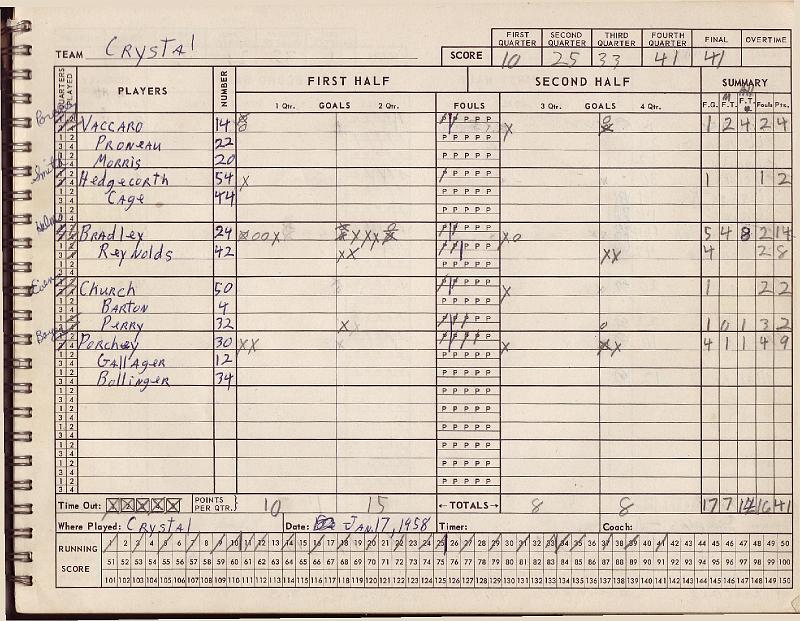 FIRST QUARTER SECOND QUARTER THIRD QUARTER FOURTH QUARTER FINAL OVERTIME
TEAM Crystal SCORE 10 25 33 41 41
QUARTERS PLAYED PLAYERS NUMBER FIRST HALF SECOND HALF SUMMARY
1 Qtr. GOALS 2 Qtr. FOULS 3 Qtr. GOALS 4 Qtr. F.G. F.T. F.T. Fouls Pts.
VACCARO 14 1 2 4 2 4
PRONEAU 22
MORRIS 20
Smith
Hedgecorth 54 X 1 1 2
CAGE 44
BRADLEY 24 5 4 8 2 14
Reynolds 42 XX XX 4 2 8
Church 50 X 1 2 2
BARTON 4
PERRY 32 X 0 1 0 1 3 2
Porchey 30 XX X 4 1 1 4 9
GALLAGER 12
Bollinger 34
Time Out: POINTS PER QTR. 10 15 ←TOTALS→ 8 8 17 7 14 16 41
Where Played: Crystal Date: JAN. 17, 1958 Timer: Coach:
1 2 3 4 5 6 7 8 9 10 11 12 13 14 15 16 17 18 19 20 21 22 23 24 25 26 27 28 29 30 31 32 33 34 35 36 37 38 39 40 41 42 43 44 45 46 47 48 49 50
RUNNING SCORE 51 52 53 54 55 56 57 58 59 60 61 62 63 64 65 66 67 68 69 70 71 72 73 74 75 76 77 78 79 80 81 82 83 84 85 86 87 88 89 90 91 92 93 94 95 96 97 98 99 100
101 102 103 104 105 106 107 108 109 110 111 112 113 114 115 116 117 118 119 120 121 122 123 124 125 126 127 128 129 130 131 132 133 134 135 136 137 138 139 140 141 142 143 144 145 146 147 148 149 150